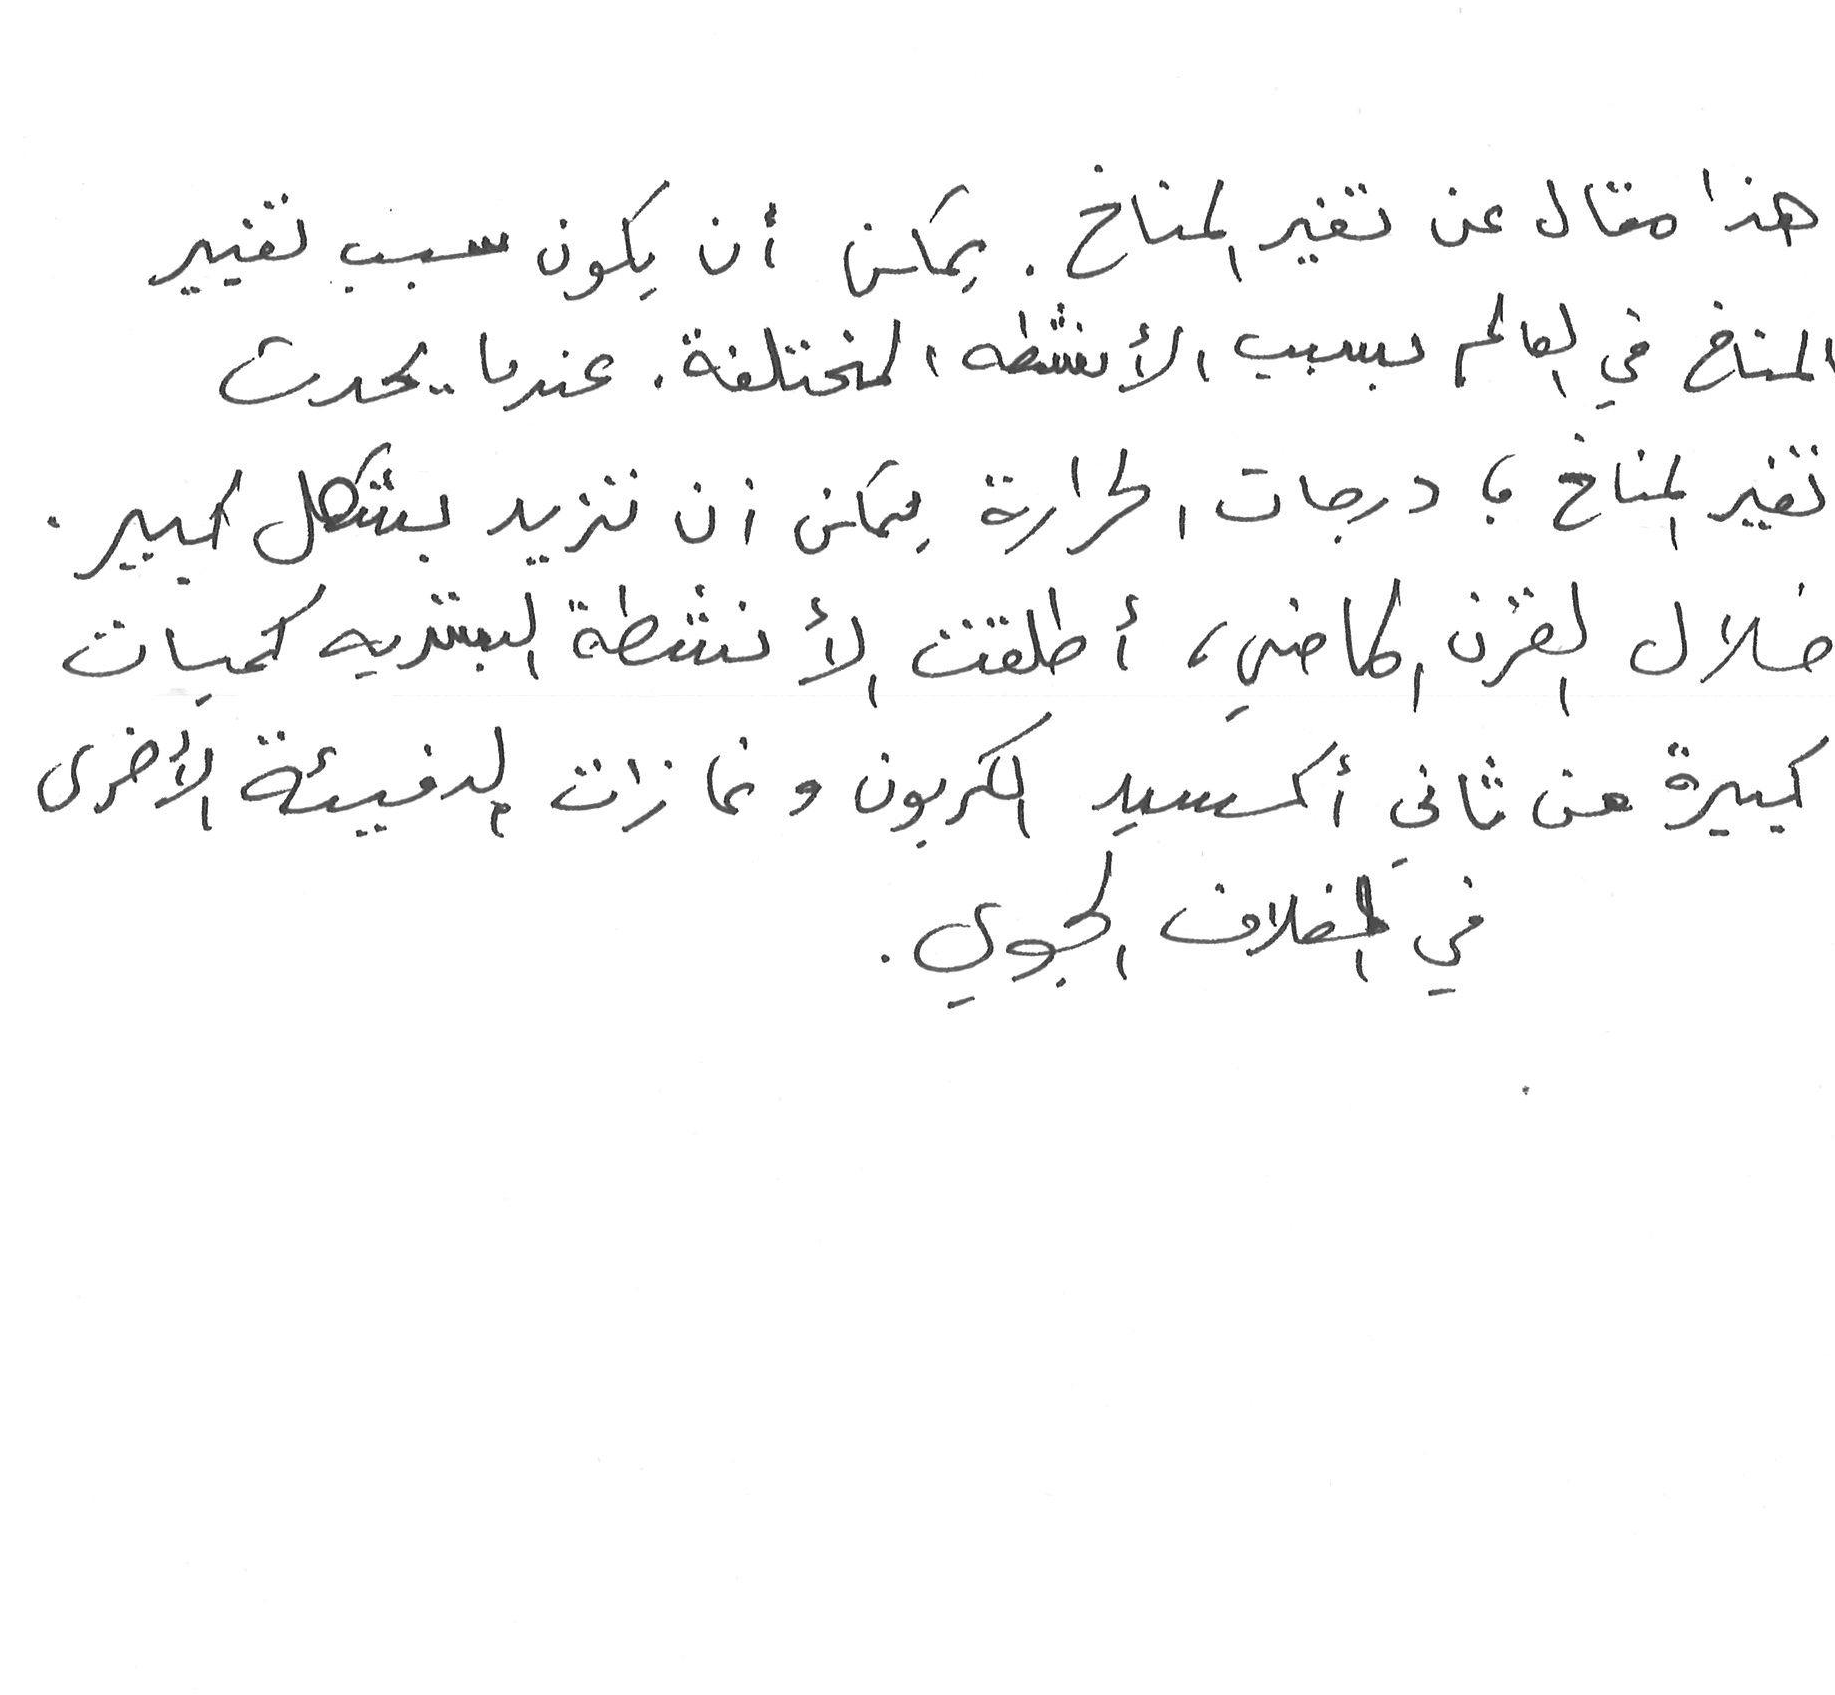 هذا مقال عن تغير المناخ. يمكن أن يكون سبب تغيير
المناخ في العالم بسبب الأنشطه المختلفة. عندما يحدث
تغير المناخ، درجات الحرارة يمكن ان تزيد بشكل كبير.
خلال القرن الماضي، أطلقت الأنشطة البشريه كميات
كبيرة من ثاني أكسيد الكربون وغازات الدفيئة الأخرى
في الغلاف الجوي.